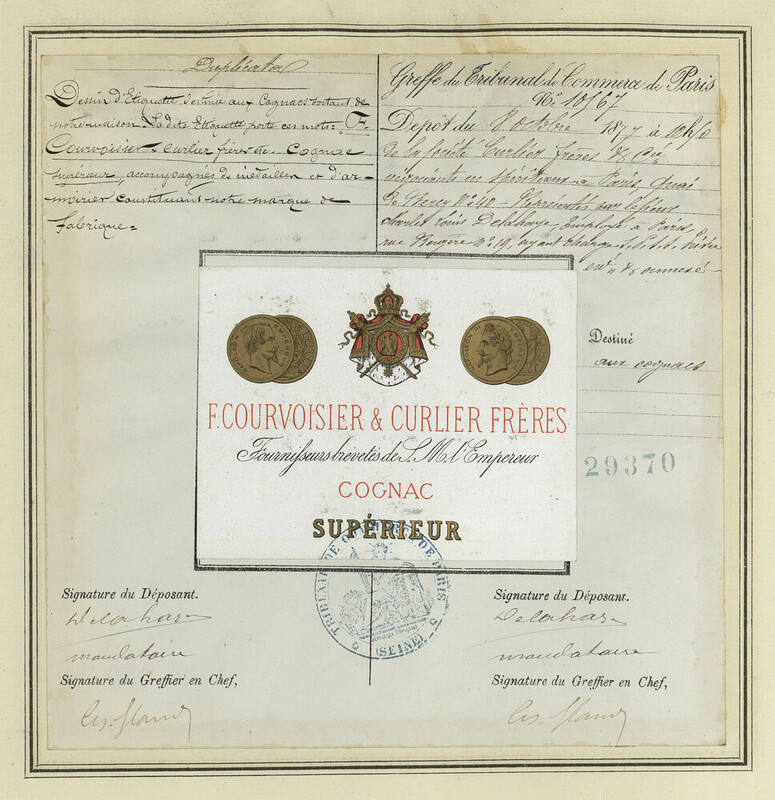 Duplicata
Dessin d'Etiquette destiné aux Cognacs sortant de
notre maison. La dite Etiquette porte ces mots: F.
Courvoisier & Curlier frères Cognac
supérieur, accompagnés de médailles et d'ar-
moiries constituant notre marque de
fabrique=
Greffe du Tribunal de Commerce de Paris
N°. 10767
Dépôt du 8 octobre 1877 à 10h/0
de la société Curlier frères & Cie
négociants en spiritueux à Paris, quai
de Bercy N° 40 - Représentés par le sieur
Charles Louis Delahaye, employé à Paris,
rue Bergère N° 19, ayant charge
en & annexé
Destiné
aux cognacs
29370
NAPOLEON III EMPEREUR
NAPOLEON III EMPEREUR
F. COURVOISIER & CURLIER FRÈRES
Fournisseurs brévetés de S. M. l'Empereur
COGNAC
SUPÉRIEUR
TRIBUNAL DE COMMERCE DE PARIS
(SEINE)
Signature du Déposant.
Delahaye
mandataire
Signature du Greffier en Chef,
Signature du Déposant.
Delahaye
mandataire
Signature du Greffier en Chef,